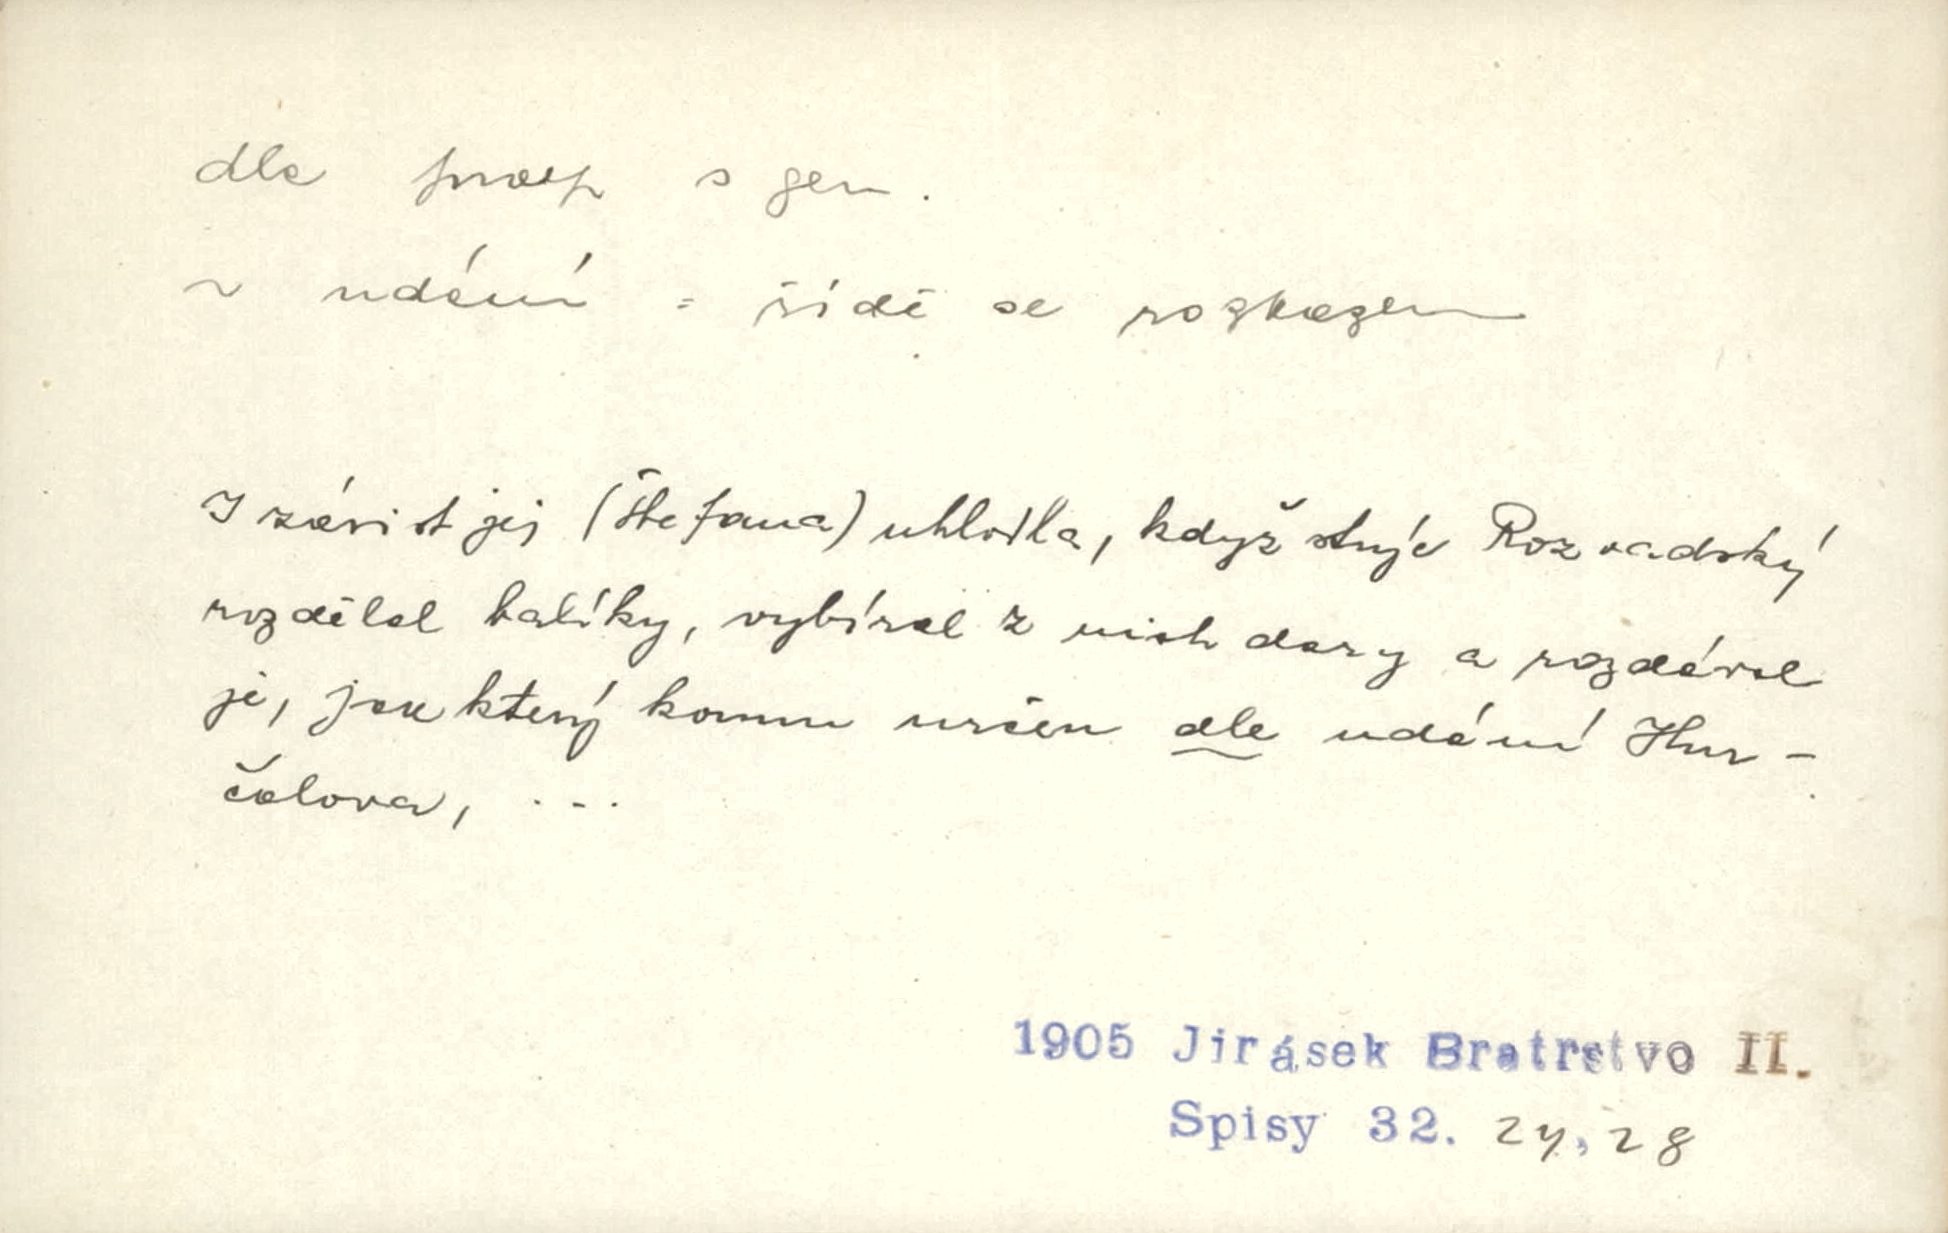 dle praep s gen.
~ udání = řídě se rozkazem
I závist jej (Štefana) uhlodla, když strýc Rozvadský
rozdělal balíky, vybíral z nich dary a rozdával
je, jak který komu určen dle udání Hur-
čalova, ...
1905 Jirásek Bratrstvo II.
Spisy 32. 24, 28